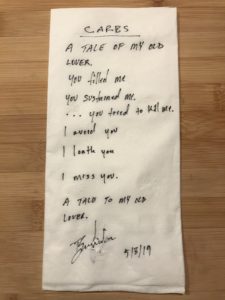 CARBS
A TALE OF MY OLD
LOVER.
you filled me
you sustained me.
... you tried to kill me.
I
I loath you
I miss you.
A TALE TO MY OLD
LOVER.
5/3/19